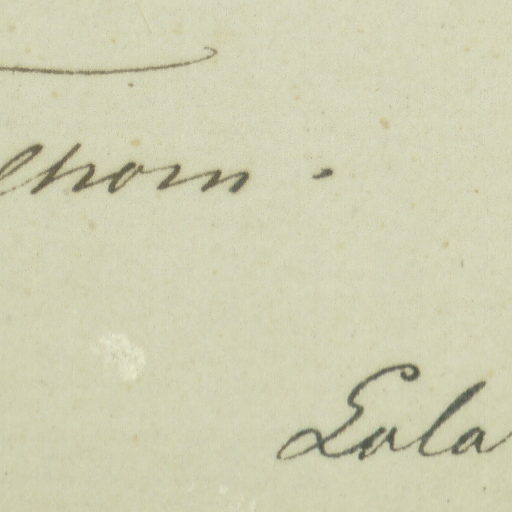 lhorn.
Lola